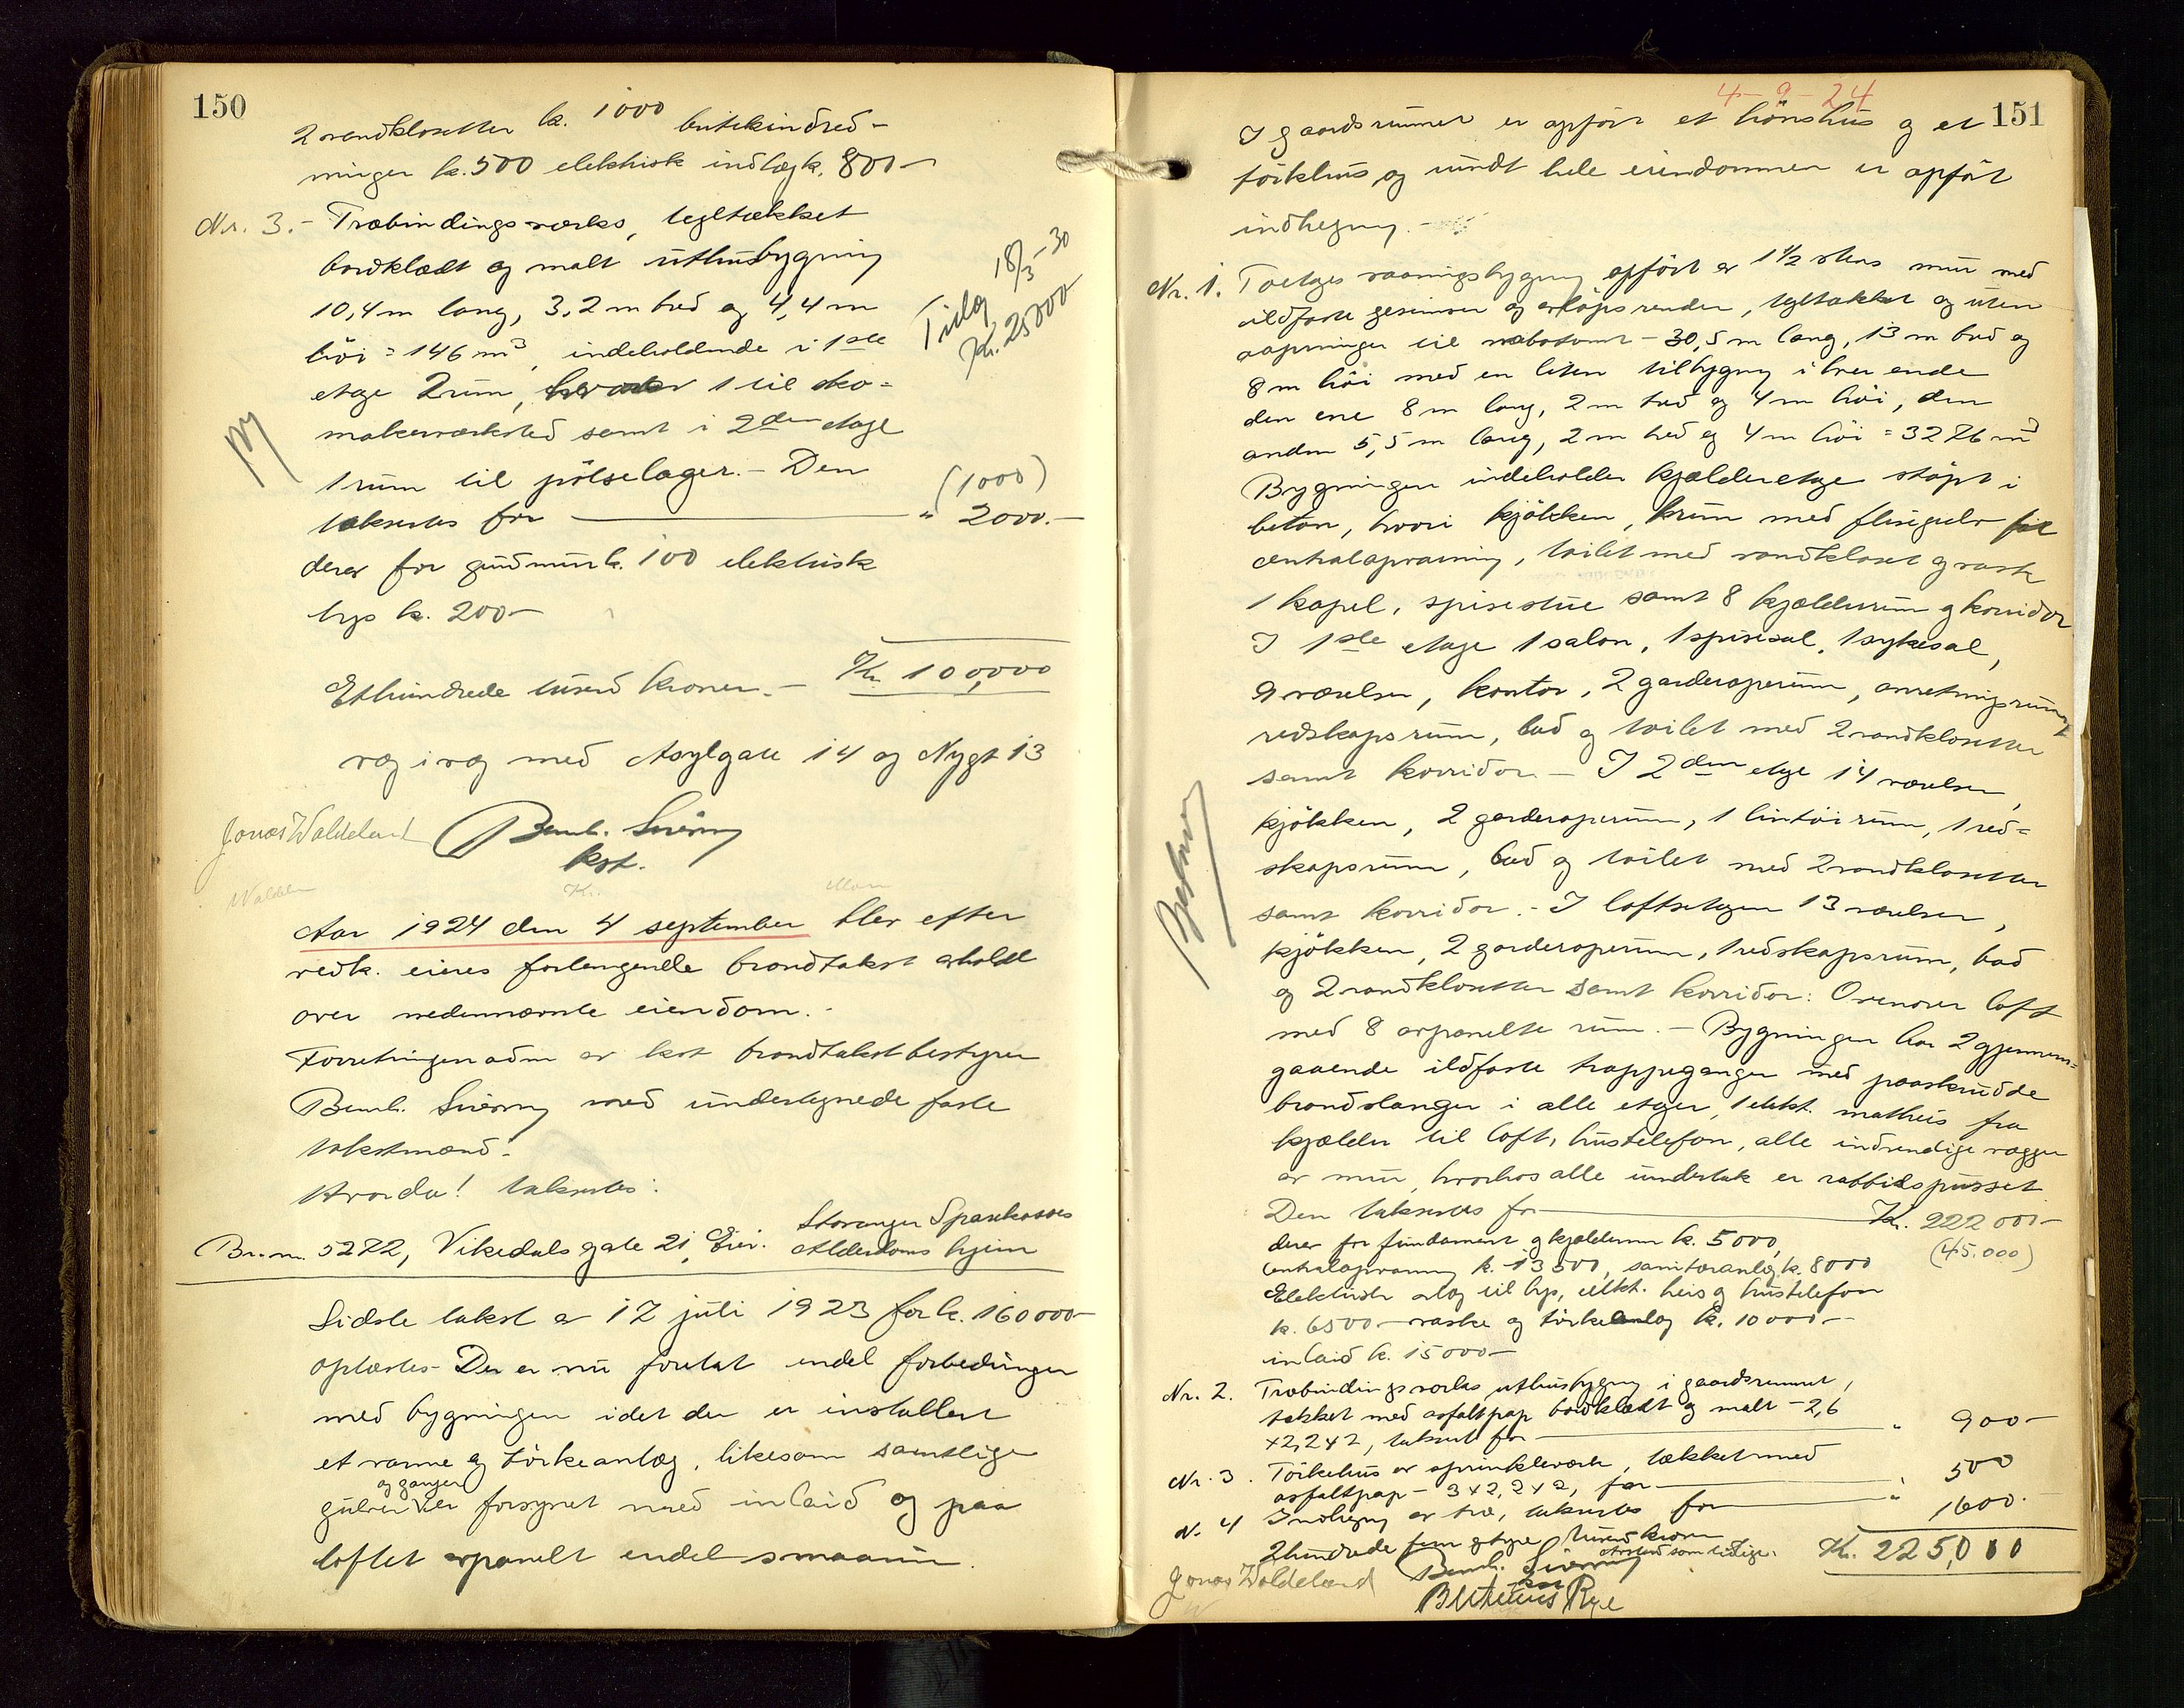 150
2 vandklosetter k. 1000 butikindred-
ninger k. 500 elektrisk indlæg k. 800-
Nr. 3.- Træbindingsverks, tegltækket
bordklædt og malt uthusbygning
10,4 m lang, 3,2 m bred og 4,4 m
høi = 146 m³, indeholdende i 1ste
etage 2 rum, hvorav 1 til sko-
makerverksted samt i 2den etage
1 rum til pølselager. - Den
(1000)
takseres for " 2000.-
derav for grundmur k. 100 elektrisk
lys k. 200-
Tillæg 18/3-30
Kr. 25000
Ny
Ethundrede tusend kroner.- Kr. 100,000
væg i væg med Asylgate 14 og Nygt 13
Jonas Waldeland
Bernh.
kst.
Aar 1924 den 4 september blev efter
vedk. eieres forlangende brandtakst avholdt
over nedennævnte eiendom.-
Forretningen adm av kst brandtakstbestyrer
Bernh. med undertegnede faste
takstmænd.
Hvorda! takseres:
Stavanger Sparekasses
Br. nr. 5272, Vikedalsgate 21, Eier. Alderdoms hjem
Sidste takst av 17 juli 1923 for k. 160000-
oplæstes- Der er nu foretat endel forbedringer
med bygningen idet der er installert
et varme og tørkeanlæg, likesom samtlige
og ganger
gulver er forsynet med inlaid og paa
loftet avpanelt endel smaarum.
4-9-24
151
I gaardsrummet er opført et hønshus og et
tørkhus og rundt hele eiendommen er opført
indhegning.-
Nr. 1. Toetages vaaningsbygning opført av 1½ stens mur med
ildfaste gesimser og avløpsrender, tegltækket og uten
aapninger til nabotomt - 30,5 m lang, 13 m bred og
8 m høi med en liten tilbygning i hver ende
den ene 8 m lang, 2 m bred og 4 m høi, den
anden 5,5 m lang, 2 m bred og 4 m høi = 3276 m³
Bygningen indeholder kjælderetage støpt i
beton, hvori kjøkken, 1 rum med flisegulv for
centralopvarming, toilet med vandkloset og vask
1 kapel, spisestue samt 8 kjælderrum og korridor
I 1ste etage 1 salon, 1 spisesal, 1 sykesal,
9 værelser, kontor, 2 garderoperum, anretningsrum
redskapsrum, bad og toilet med 2 vandklosetter
samt korridor - I 2den etage 14 værelser,
kjøkken, 2 garderoperum, 1 lintøirum, 1 red-
skapsrum, bad og toilet med 2 vandklosetter
samt korridor.- I loftsetagen 13 værelser,
kjøkken, 2 garderoperum, 1 redskapsrum, bad
og 2 vandklosetter samt korridor: Ovenover loft
med 8 avpanelte rum.- Bygningen har 2 gjennem-
gaaende ildfaste trappeganger med paaskrudde
brandslanger i alle etager, 1 elekt. matheis fra
kjælder til loft, hustelefon, alle indvendige vægger
av mur, hvorhos alle undertak er rabbidspusset
Den takseres for Kr. 222000-
derav for fundament og kjælderrum k. 5000,
(45.000)
centralopvarming k. 13500, sanitæranlæg k. 8000
Elektrisk anlæg til lys, elekt. heis og hustelefon
k. 6500- vaske og tørkeanlæg k. 10000-
inlaid k. 15000-
Nr. 2. Træbindingsverks uthusbygning i gaardsrummet,
tækket med asfaltpap bordklædt og malt - 2,6
x 2,2 x 2, takseret for " 900-
Nr. 3. Tørkehus av sprinkleverk, tækket med
asfaltpap - 3 x 2,2 x 2, for " 500
N. 4 Indhegning av træ, takseres for " 1600.
2 hundrede fem og tyve tusend kroner Kr. 225,000
Avstand som tidligere.
Jonas Waldeland
Bernh.
kst